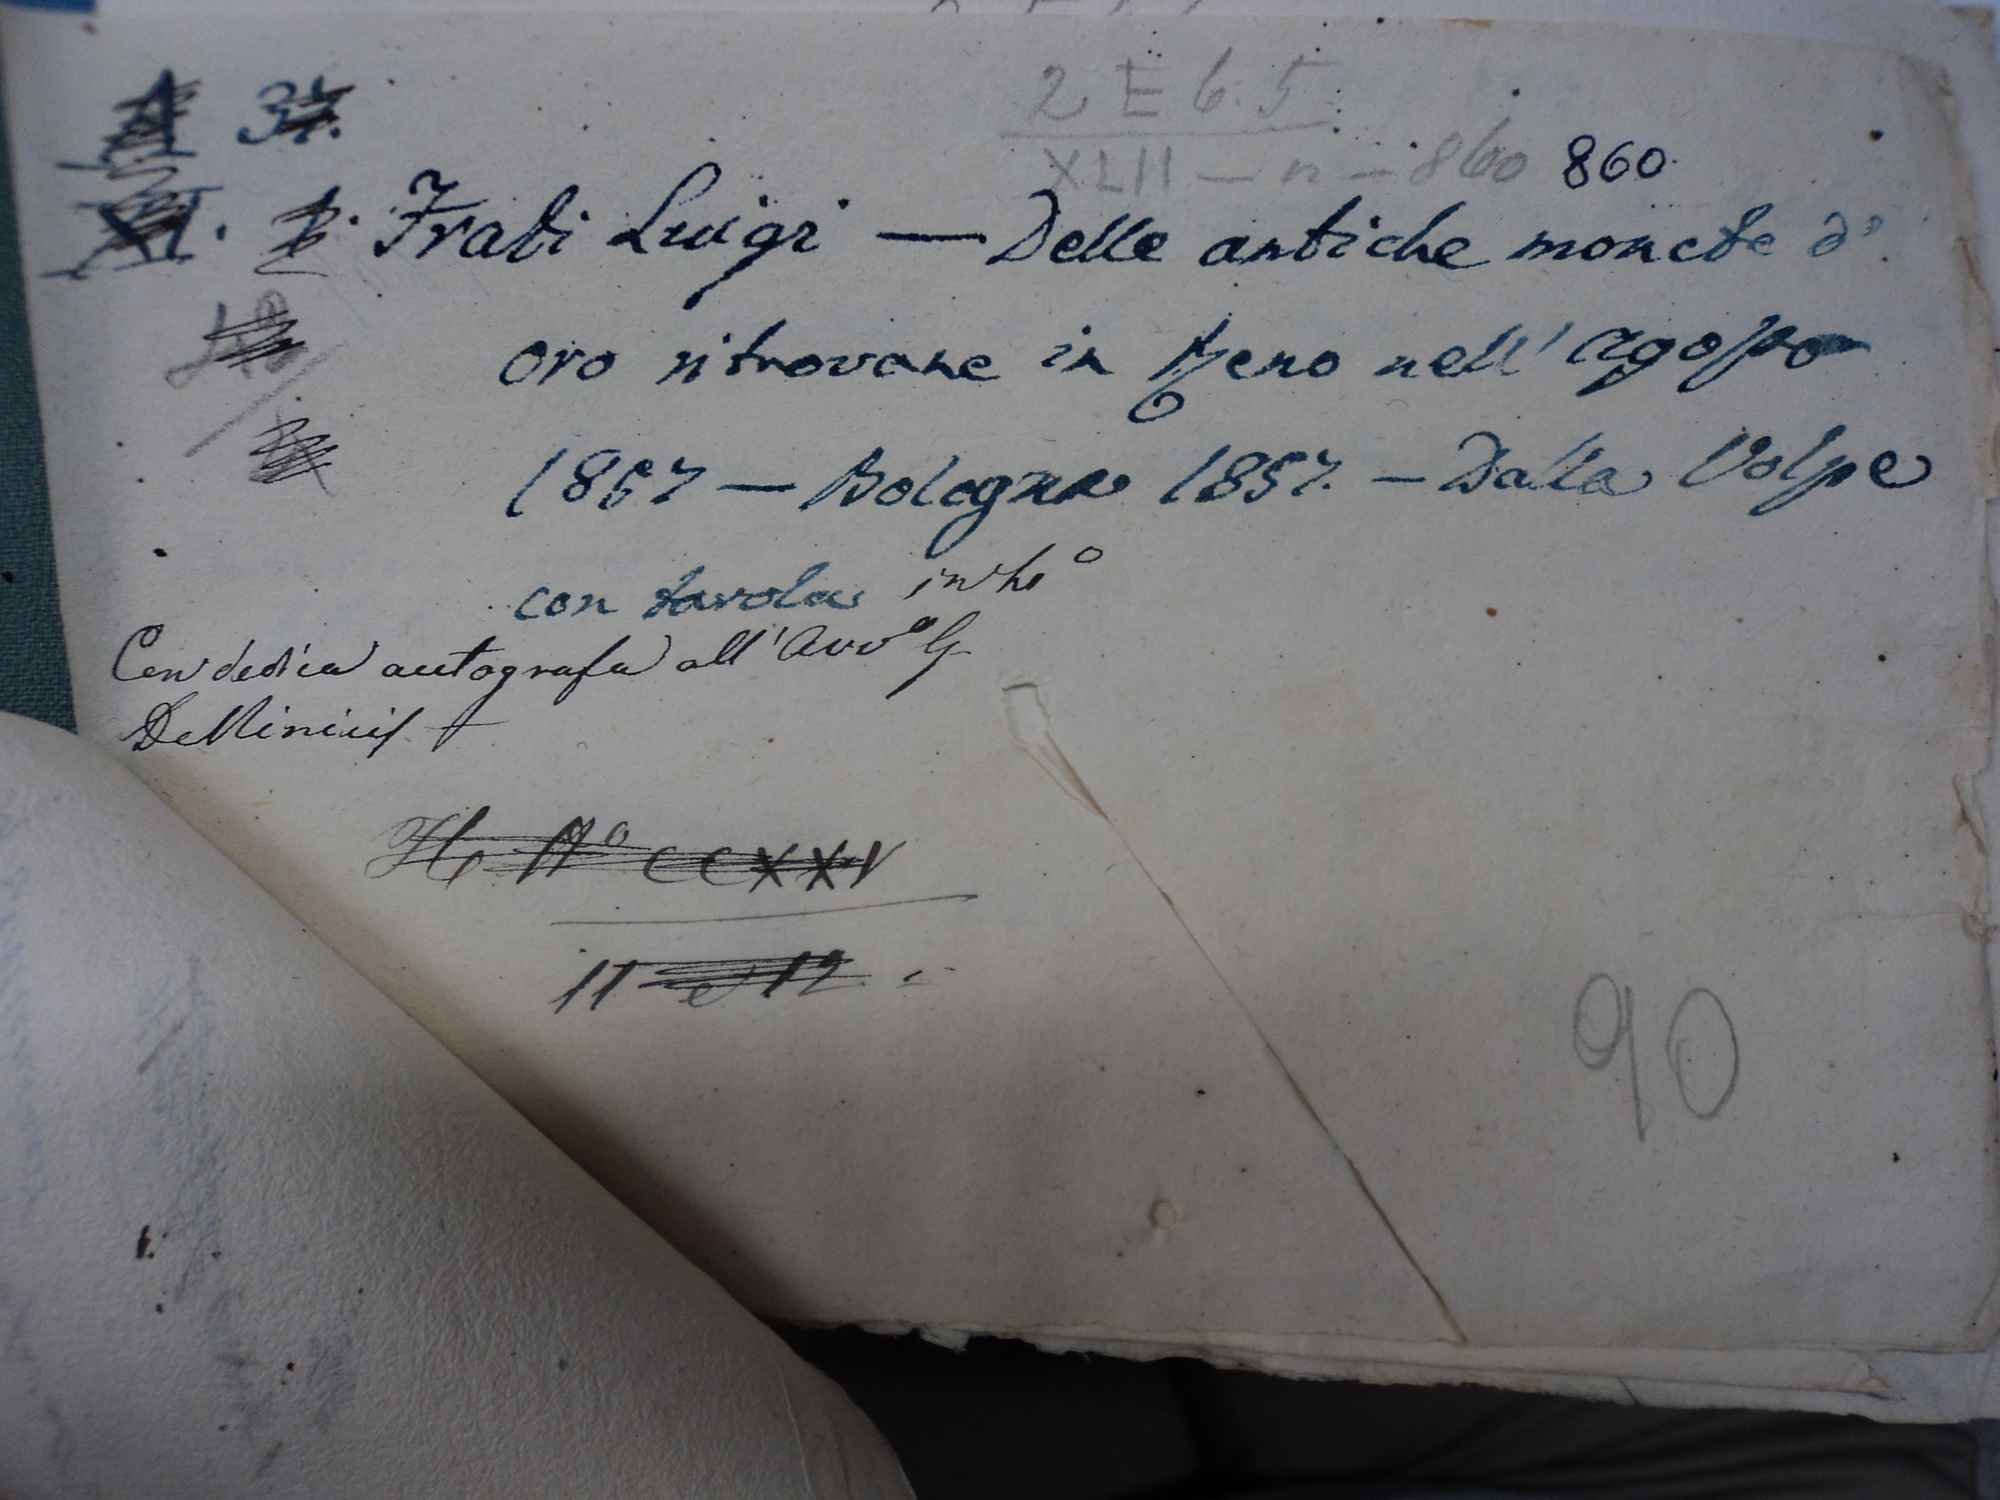 2 E 6.5
XLII – n – 860 860.
Frati Luigi — Delle antiche monete d'
oro ritrovane in Reno nell' Agosto
1857 — Bologna 1857. — Dalla Volpe
con tavola in 4°
Con dedica autografa all' Avv° G
De Minicis
N° CCXXV
11 e 12
90